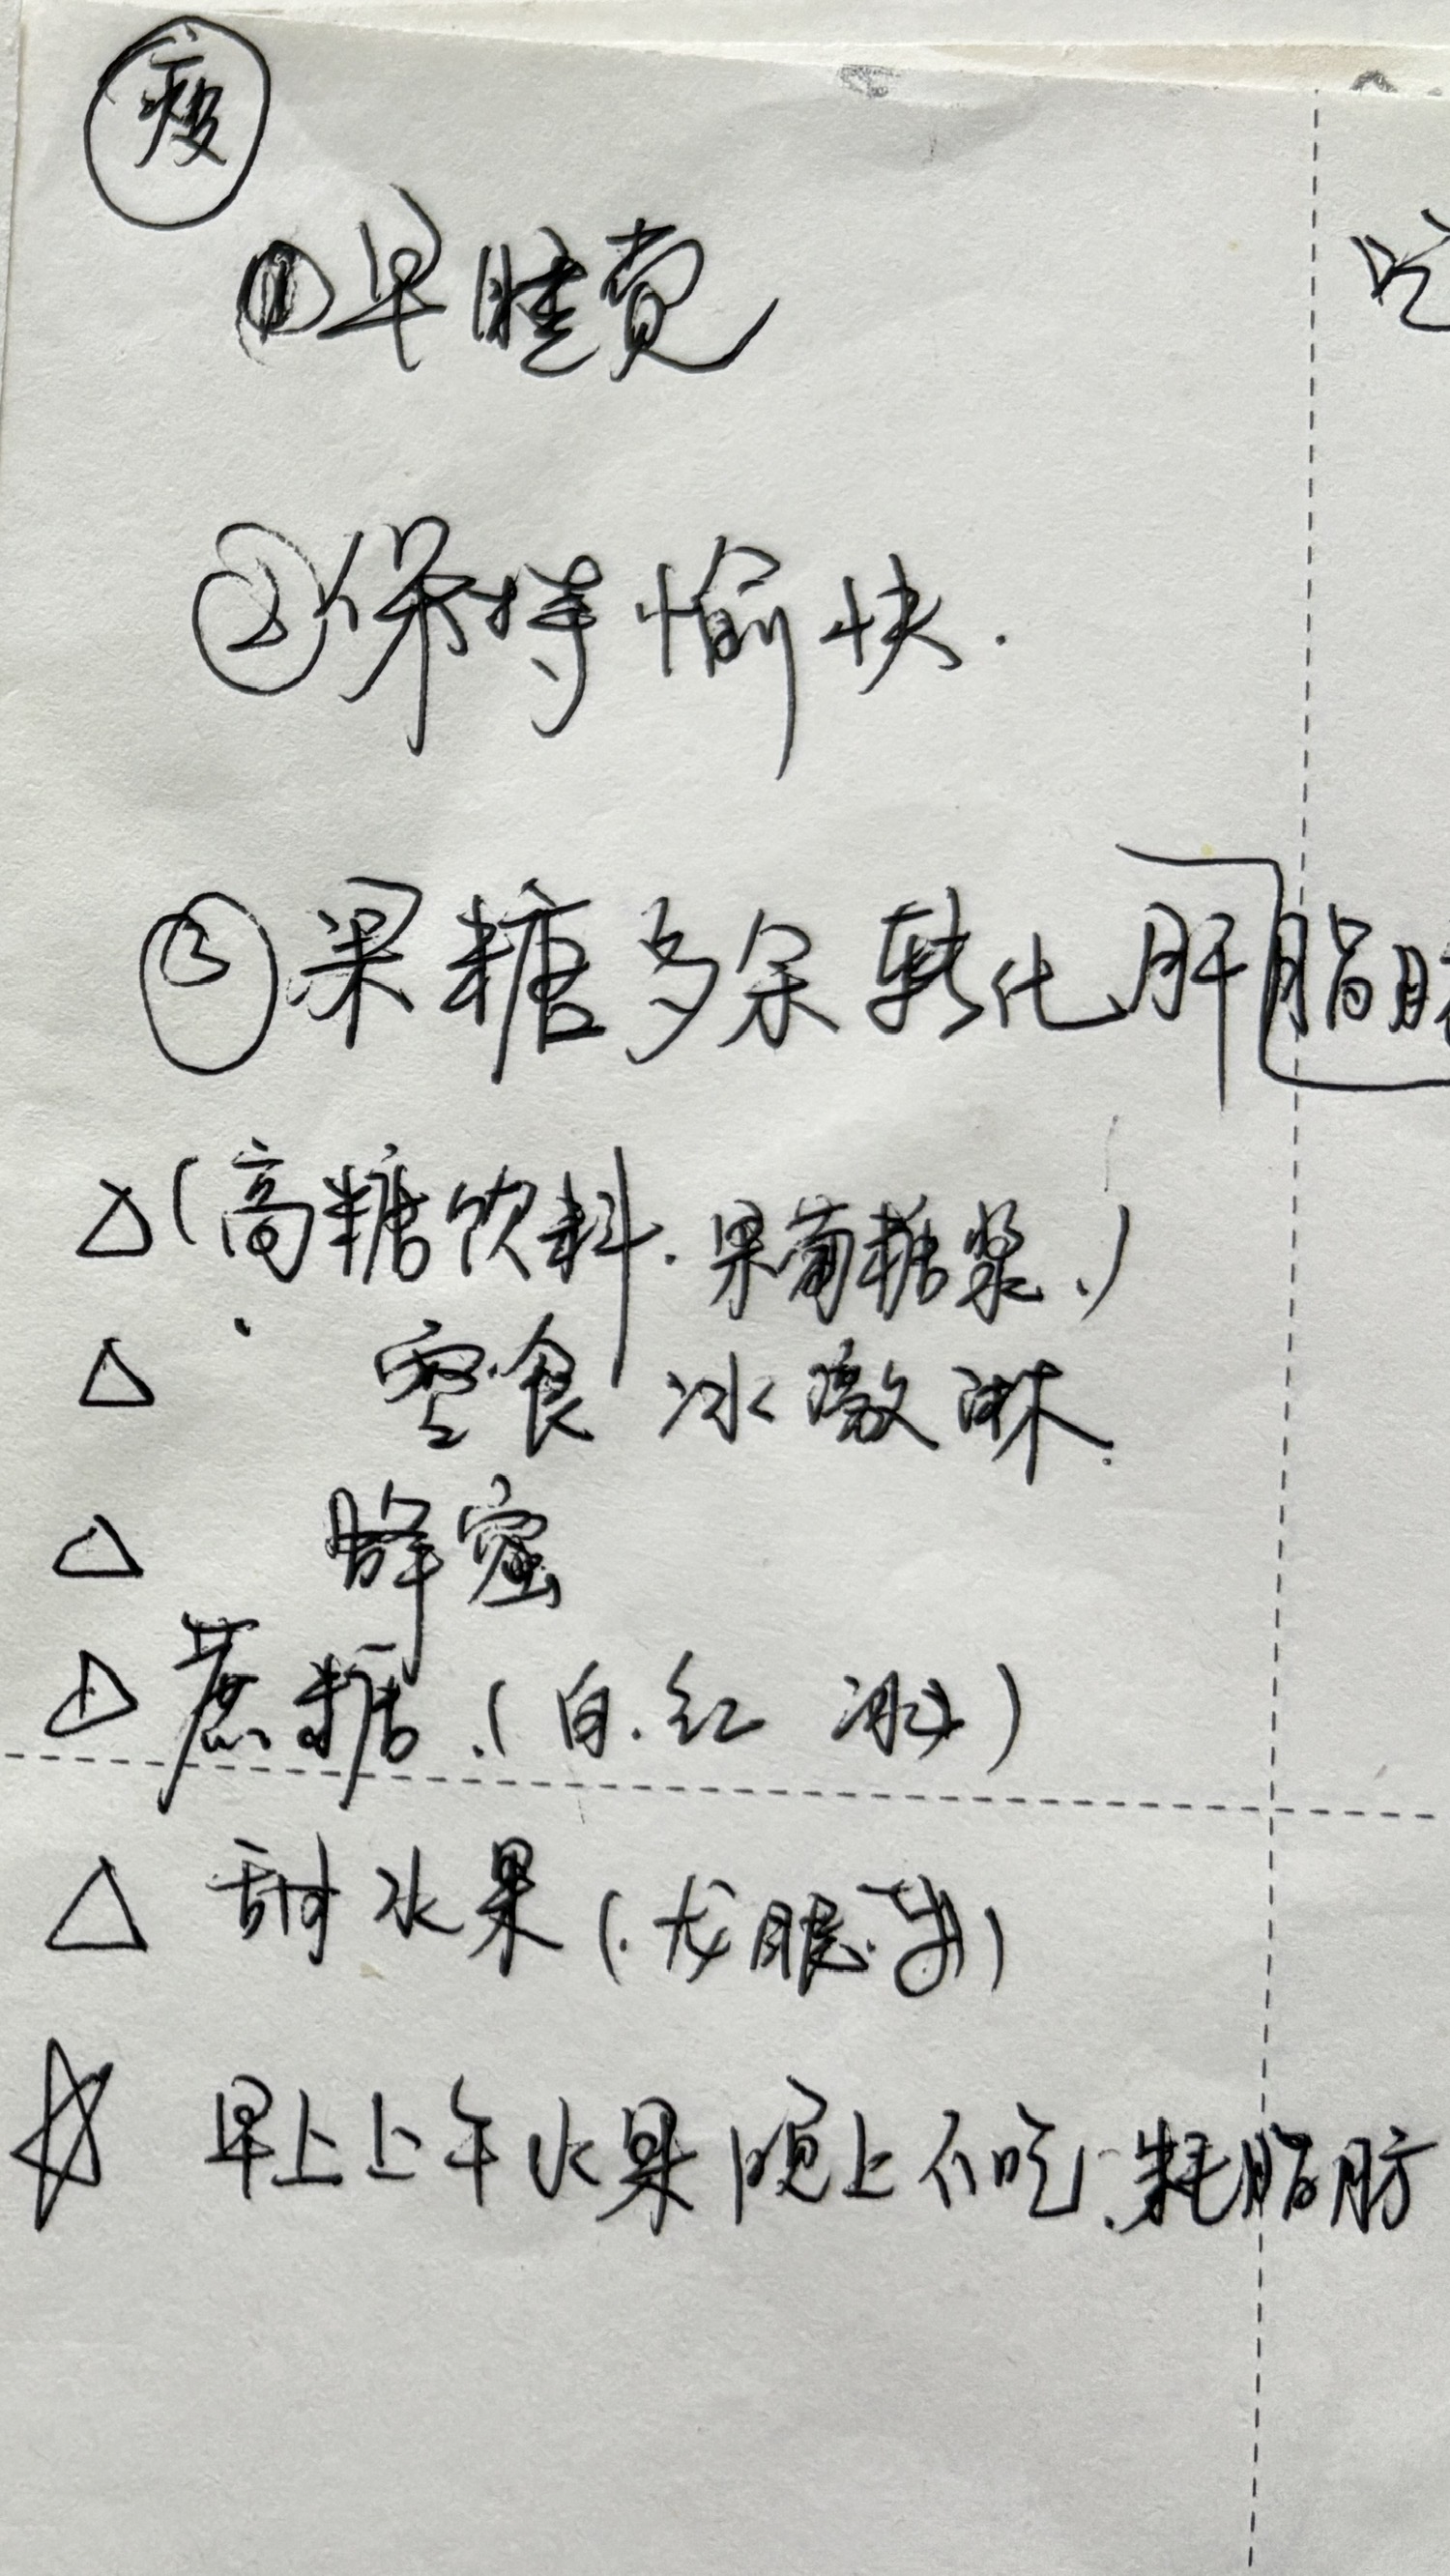 瘦
①早睡觉
吃
②保持愉快.
③果糖多余转化肝脂肪
△(高糖饮料.果葡糖浆.)
△ 零食 冰激淋.
△ 蜂蜜
△蔗糖.(白.红 冰)
△ 甜水果(.龙眼.)
☆ 早上上午水果晚上不吃.耗脂肪